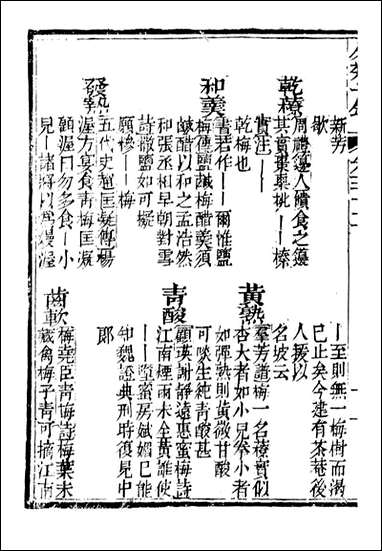 新芳
歇
乾䕩
周禮籩人饋食之籩
其實棗㮚桃——榛
實注——
乾梅也
和羹
書若作——爾惟鹽
梅傳鹽鹹梅醋羹須
鹹醋以和之孟浩然
和張丞相早朝對雪
詩撒鹽如可擬
願糝——梅
發怒
五代史趙匡凝傳楊
渥方宴食青梅匡凝
顧渥曰勿多食——小
兒——諸將以爲慢渥
——至則無一梅樹而渴
已止矣今建有茶菴後
人援以
名坡云
黃熟
羣芳譜梅一名䕩實似
杏大者如小兒拳小者
如彈熟則黃微甘酸
可啖生純青酸甚
青酸
顧瑛謝靜遠惠蜜梅詩
江南煙雨未全黃誰使
——鹽蜜房媚已能
知魏證典刑時復見中
郎
齒軟
梅堯臣青梅詩梅葉未
藏禽梅子青可摘江南